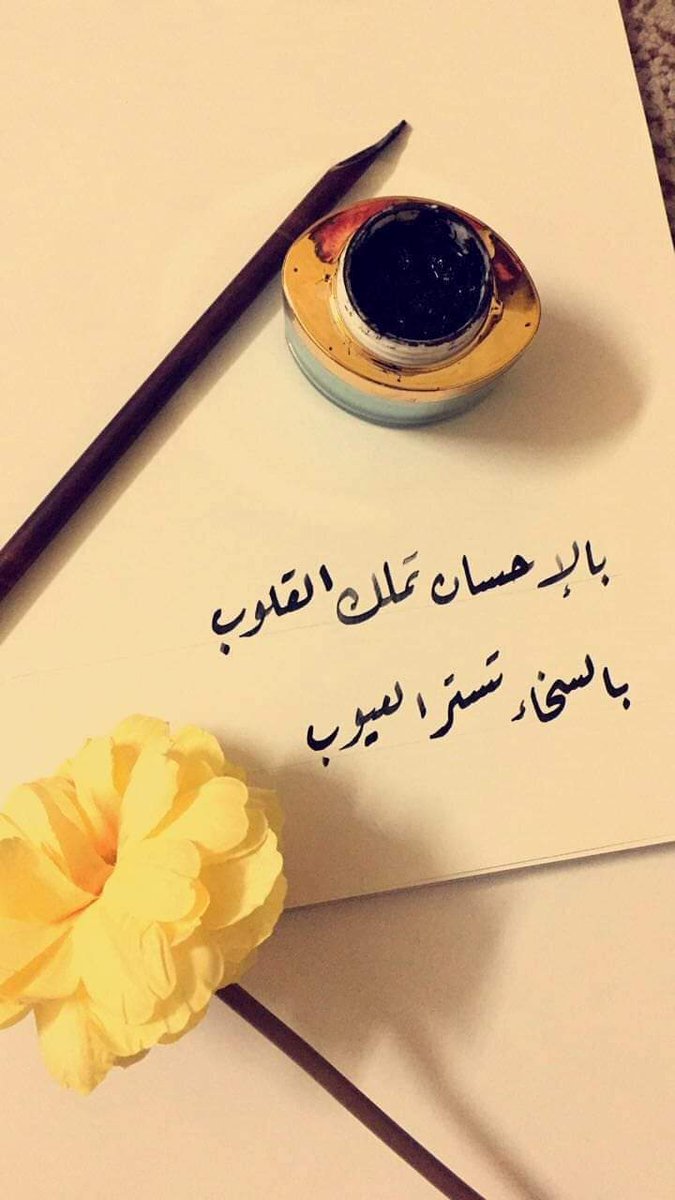 بالإحسان تملك القلوب
بالسخاء تستر العيوب